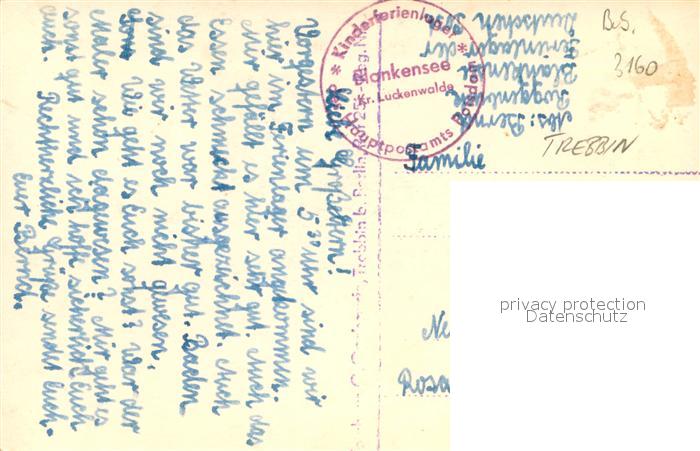 Liebe Großeltern!
Vorgestern um 5³⁰ Uhr sind wir
hier im Ferienlager angekommen.
Mir gefällt es hier sehr gut. Auch das
Essen schmeckt ausgezeichnet. Auch
das Wetter war bisher gut. Baden
sind wir noch nicht gewesen.
Wie geht es Euch sonst? War der
Maler schon dagewesen? Mir geht es
sonst gut und ich hoffe sicherlich Euch
auch. Recht herzliche Grüße sendet Euch
Euer
Kinderferienlager
Blankensee
Kr. Luckenwalde
des Hauptpostamts Potsdam
Abs: Bernd
Blankensee
Ferienlager der
Deutschen Post
BeS.
3160
TREBBIN
Familie
Ne
Rosa
Trebbin b. Berlin
privacy protection
Datenschutz